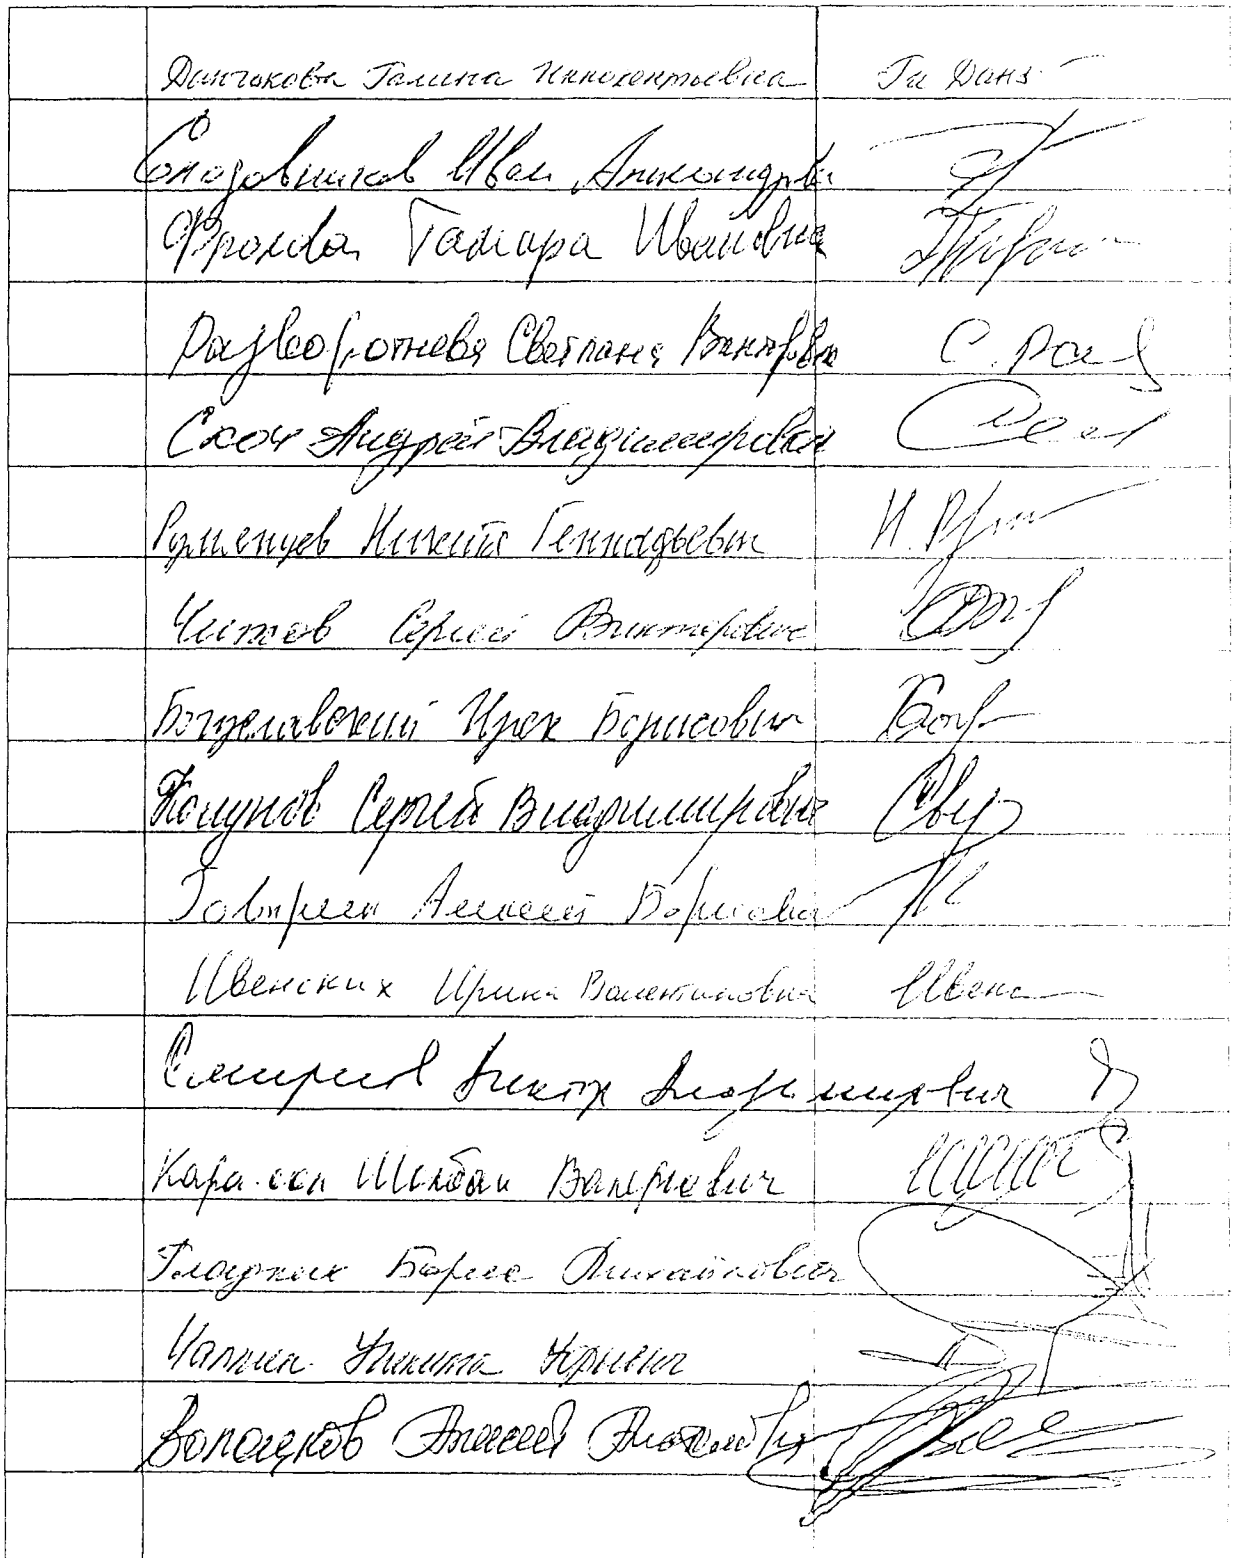 Данчикова Галина Иннокентьевна Га Данз
Солодовников Иван Александрович
Фролова Тамара Ивановна
Разворотнева Светлана Викторовна С. Раз
Скоч Андрей Владимирович
Румянцев Никита Геннадьевич Н. Рум
Чижов Сергей Викторович
Богуславский Ирек Борисович Богу
Кошунов Сергей Владимирович
Говырин Алексей Борисович
Ивенских Ирина Валентиновна Ивенс
Смирнов Виктор Владимирович
Кара-оол Шолбан Валерьевич
Гладких Борис Михайлович
Чаплин Никита Юрьевич
Волоцков Алексей Анатольевич